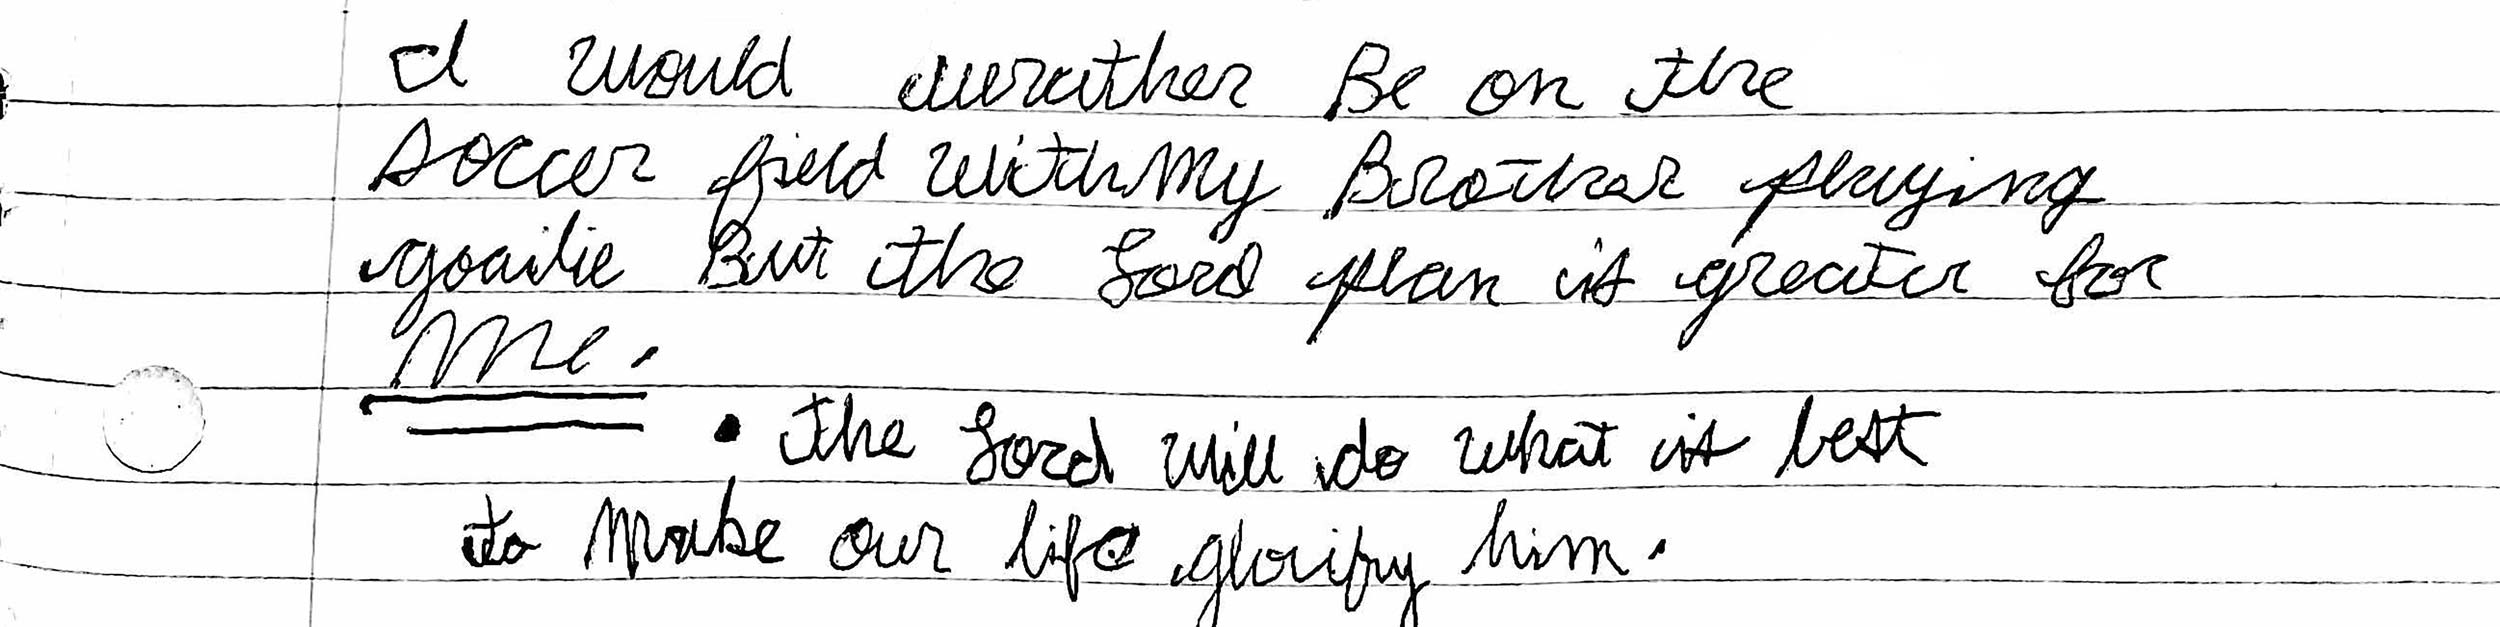 I would rather Be on the
soccer field with My Brother playing
goailie But the Lord plan is greater for
Me.
• The Lord will do what is best
to Make our life glorify him.